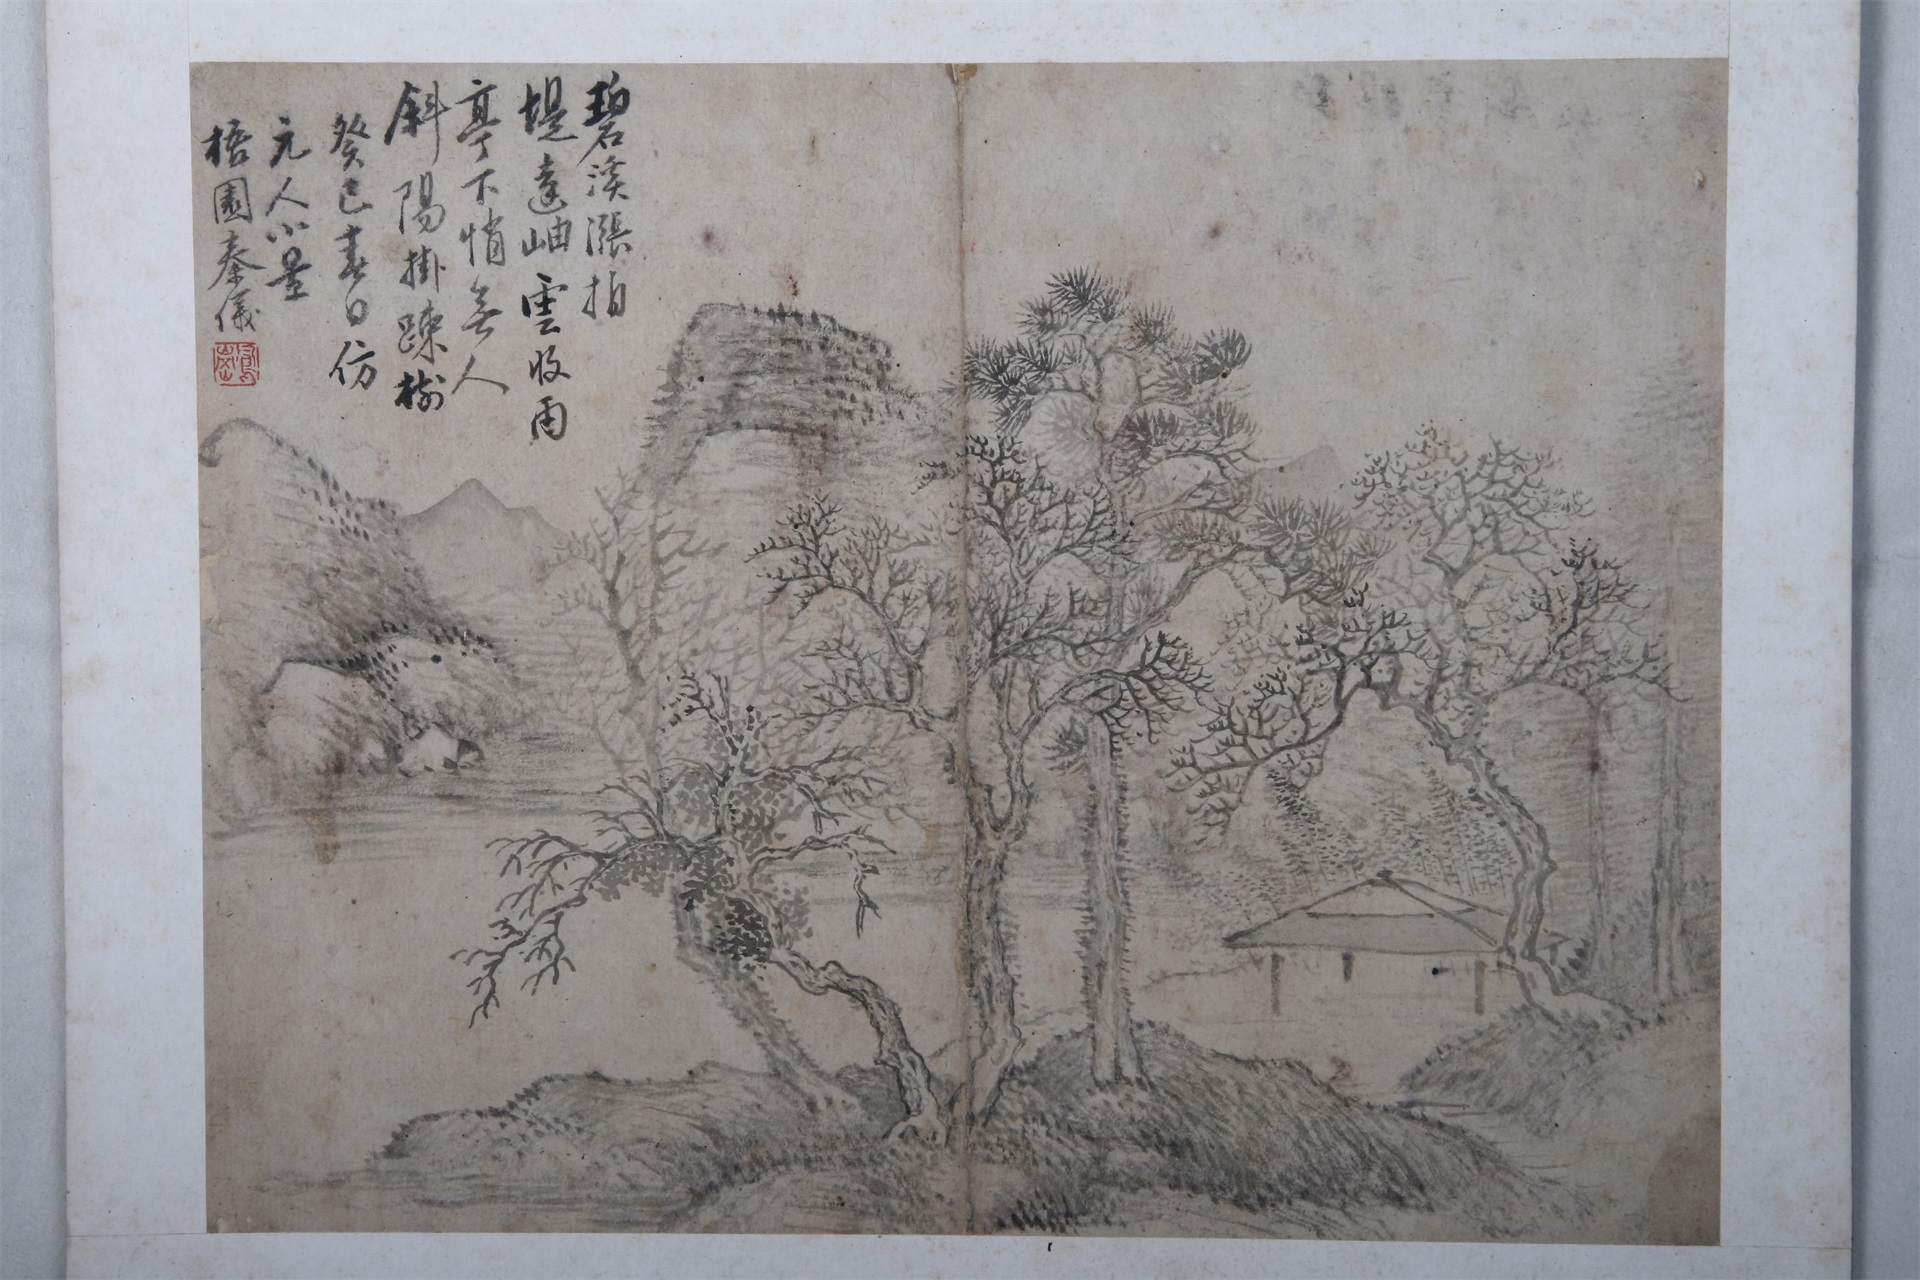 碧溪漲拍
堤遠岫雲收雨
亭下悄無人
斜陽掛疎樹
癸巳春日仿
元人小景
梧園秦儀